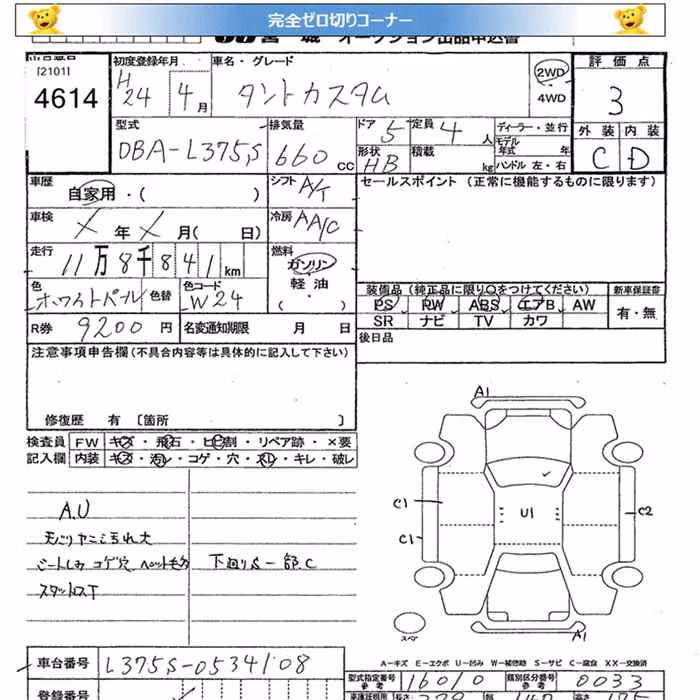 完全ゼロ切りコーナー
宮城 オークション出品申込書
出品番号 初度登録年月 車名・グレード 2WD 評価点
[2101] H
4614 24 4月 タントカスタム 4WD 3
型式 排気量 ドア 5 定員 4 人 ディーラー・並行 外装 内装
モデル年式 年
DBA-L375S 660 CC 形状 HB 積載 kg ハンドル 左・右 C D
車歴 自家用・( ) シフト A/T セールスポイント (正常に機能するものに限ります)
車検 X 年 X 月( 日) 冷房 AA/C
走行 11万8千841km 燃料 ガソリン
軽油
・( )
色 ホワイトパール 色替 色コード W24 装備品 (純正品に限り○をつけてください) 新車保証書
PS PW ABS エアB AW 有・無
SR ナビ TV カワ
R券 9200 円 名変通知期限 月 日 後日品
注意事項申告欄(不具合内容等は具体的に記入して下さい)
修復歴 有 〔箇所 〕
検査員 FW キズ・飛石・ヒビ割・リペア跡・×要
記入欄 内装 キズ・汚レ・コゲ・穴・スレ・キレ・破レ
A1
A.U
天バリヤニ汚れ大
シートしみ コゲ穴 ペット毛多 下回りS一部C
スタッドレスT
C1 U1 C2
C1
スペア A1
A-キズ E-エクボ U-凹み W-補修跡 S-サビ C-腐食 XX-交換済
車台番号 L375S-0534108
型式指定番号 16010 類別区分番号 0033
登録番号